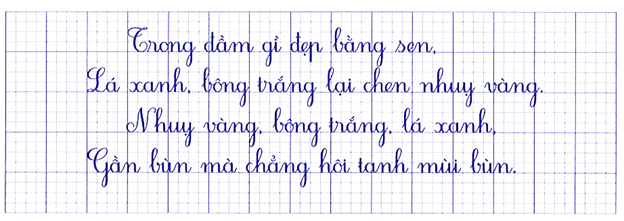 Trong đầm gì đẹp bằng sen,
Lá xanh, bông trắng lại chen nhuỵ vàng.
Nhuỵ vàng, bông trắng, lá xanh,
Gần bùn mà chẳng hôi tanh mùi bùn.